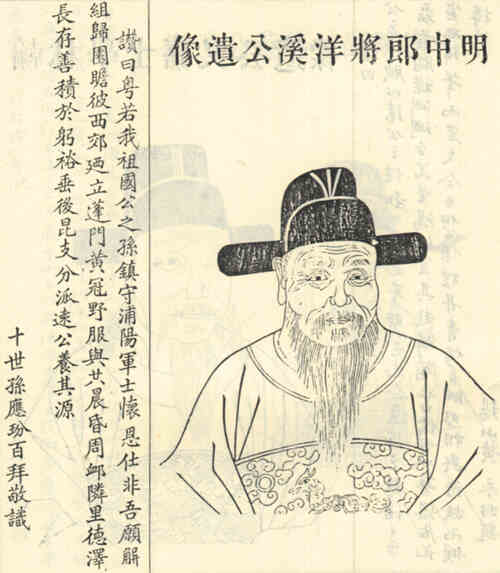 明中郎將洋溪公遺像
讚曰粵若我祖國公之孫鎮守浦陽軍士懷恩仕非吾願解
組歸園瞻彼西郊廼立蓬門黃冠野服與共晨昏周卹隣里德澤
長存善積於躬裕垂後昆支分派遠公養其源
十世孫應玢百拜敬識